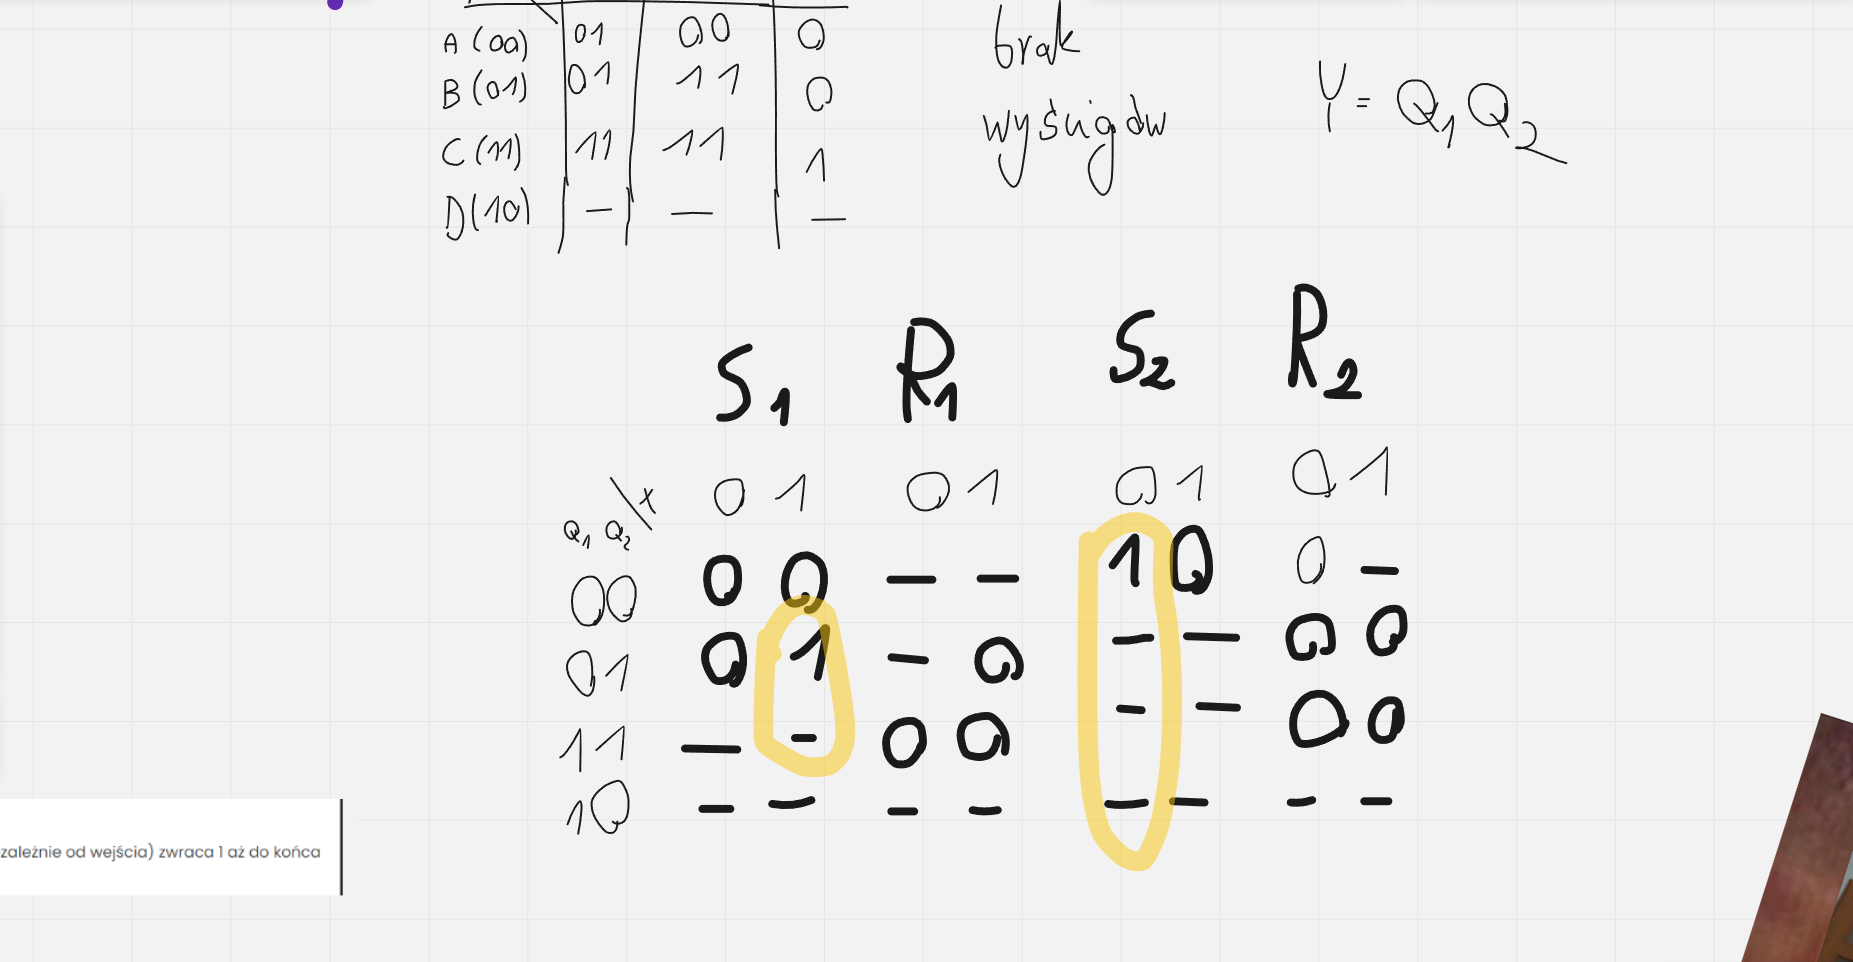 A (00) 01 00 0
B (01) 01 11 0
C (11) 11 11 1
D (10) — — —
brak
wyścigów
Y = Q1 Q2
S1 R1 S2 R2
Q1 Q2 \ x 0 1 0 1 0 1 0 1
00 0 0 — — 1 0 0 —
01 0 1 — 0 — — 0 0
11 — - 0 0 - — 0 0
10 — — — — — — - —
zależnie od wejścia) zwraca 1 aż do końca